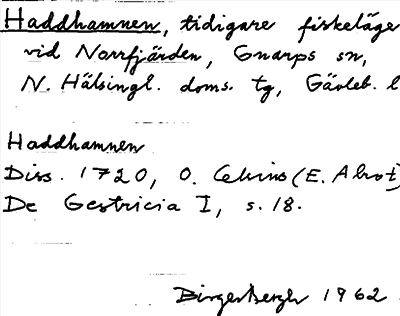 Haddhamnen, tidigare fiskeläge
vid Norrfjärden, Gnarps sn,
N. Hälsingl. doms. tg, Gävleb. l
Haddhamnen
Diss. 1720, O. Celsius (E. Alrot)
De Gestricia I, s. 18.
Birger Bergh 1962.